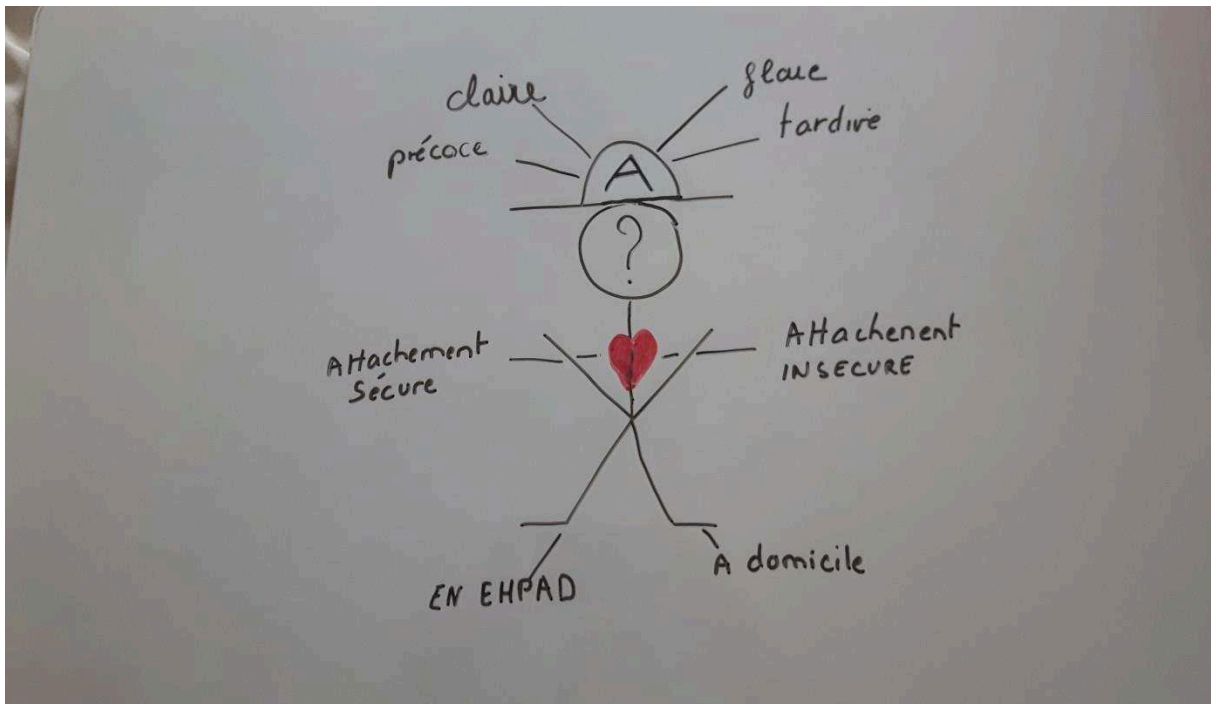 claire
floue
précoce
tardive
A
?
Attachement
Sécure
Attachenent
INSECURE
EN EHPAD
A domicile